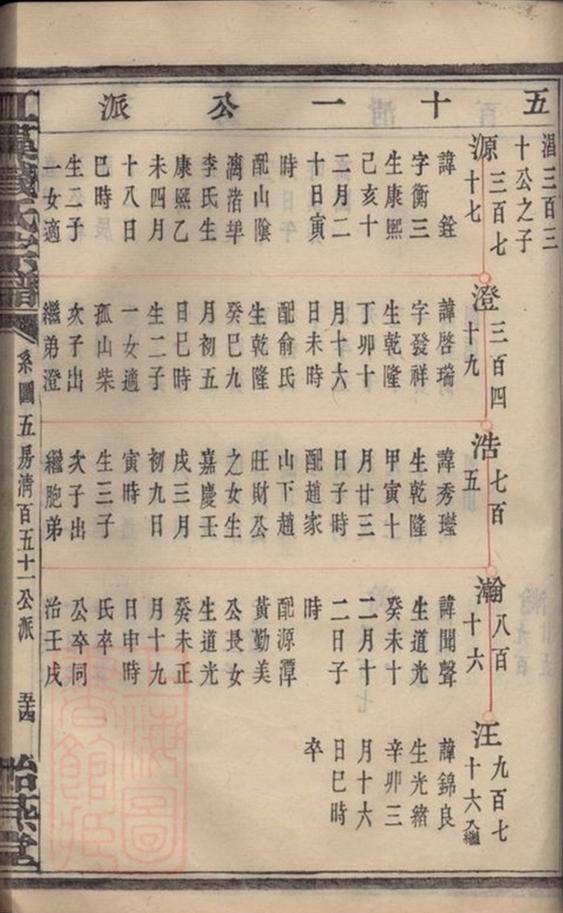 五十一公派
三百三
十公之子
源三百七
十七
諱銓
字衡三
生康熙
己亥十
二月二
十日寅
時
配山陰
漓渚
李氏生
康熙乙
未四月
十八日
巳時
生二子
一女適
澄三百四
十九
諱啓瑞
字發祥
生乾隆
丁卯十
月十六
日未時
配俞氏
生乾隆
癸巳九
月初五
日巳時
生二子
一女適
孤山柴
次子出
繼弟澄
浩七百
五
諱秀
生乾隆
甲寅十
月廿三
日子時
配趙家
山下趙
旺財公
之女生
嘉慶壬
戌三月
初九日
寅時
生三子
次子出
繼胞弟
瀚八百
十六
諱聞聲
生道光
癸未十
二月十
二日子
時
配源潭
黃勤美
公長女
生道光
癸未正
月十九
日申時
氏卒
公卒同
治壬戌
汪九百七
十六入繼
諱錦良
生光緒
辛卯三
月十六
日巳時
卒
氏宗譜
系圖五房清百五十一公派
五四
怡燕堂